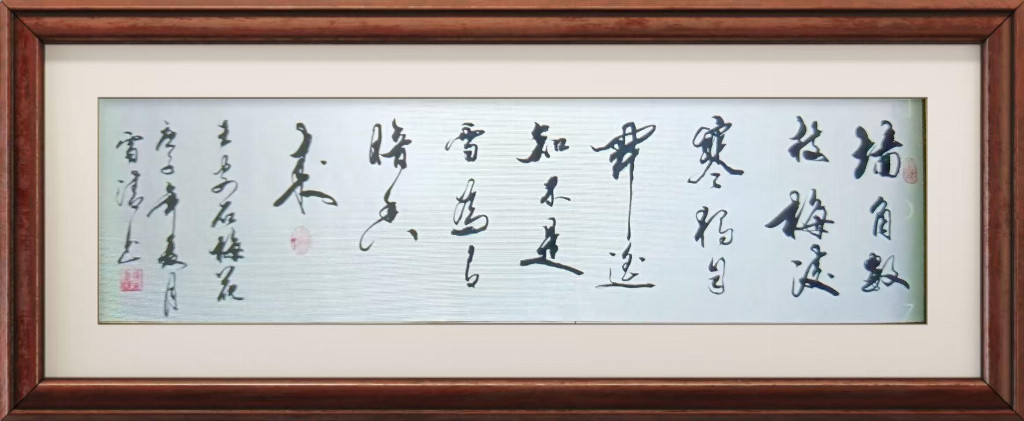 墙角数
枝梅凌
寒独自
開遥
知不是
雪為有
暗香
来
王安石梅花
庚子年夏月
雪清